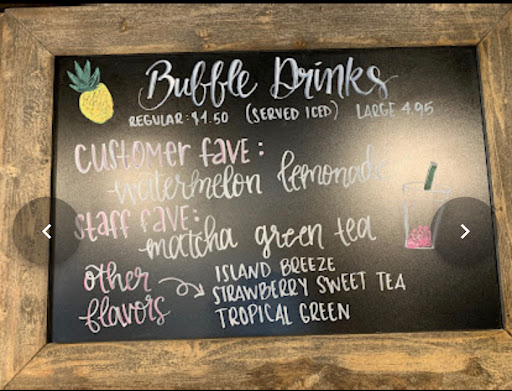 Bubble Drinks
REGULAR: $4.50 (SERVED ICED) LARGE 4.95
CUSTOMER FAVE:
watermelon lemonade
STAFF FAVE:
matcha green tea
other flavors
ISLAND BREEZE
STRAWBERRY SWEET TEA
TROPICAL GREEN